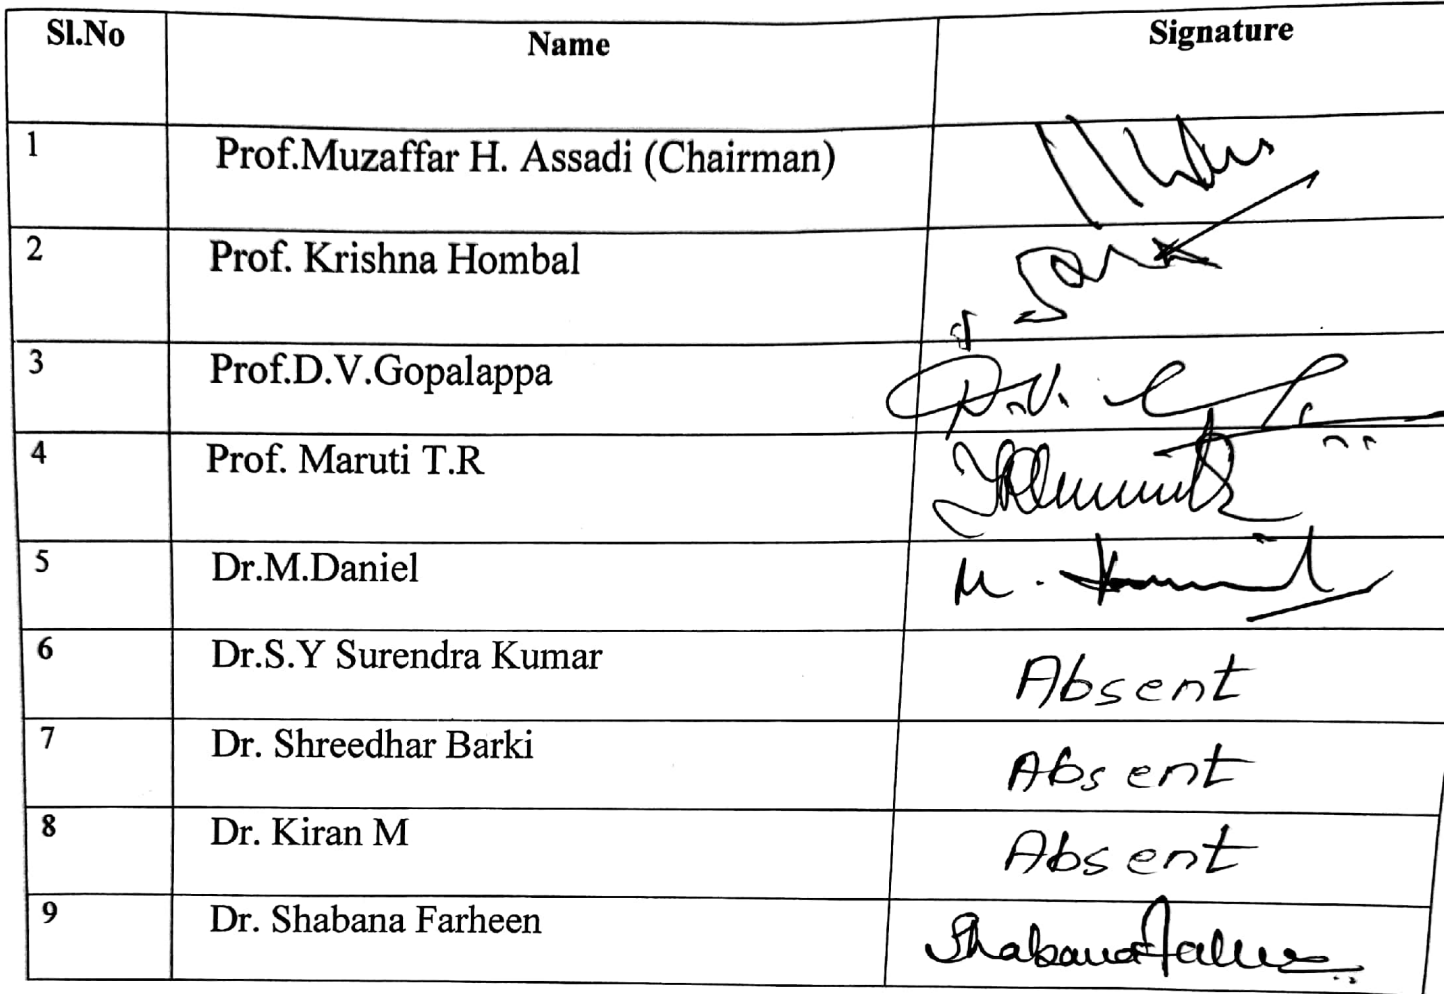 Sl.No Name Signature
1 Prof.Muzaffar H. Assadi (Chairman)
2 Prof. Krishna Hombal
3 Prof.D.V.Gopalappa D.V.
4 Prof. Maruti T.R
5 Dr.M.Daniel M.
6 Dr.S.Y Surendra Kumar Absent
7 Dr. Shreedhar Barki Absent
8 Dr. Kiran M Absent
9 Dr. Shabana Farheen Shabana